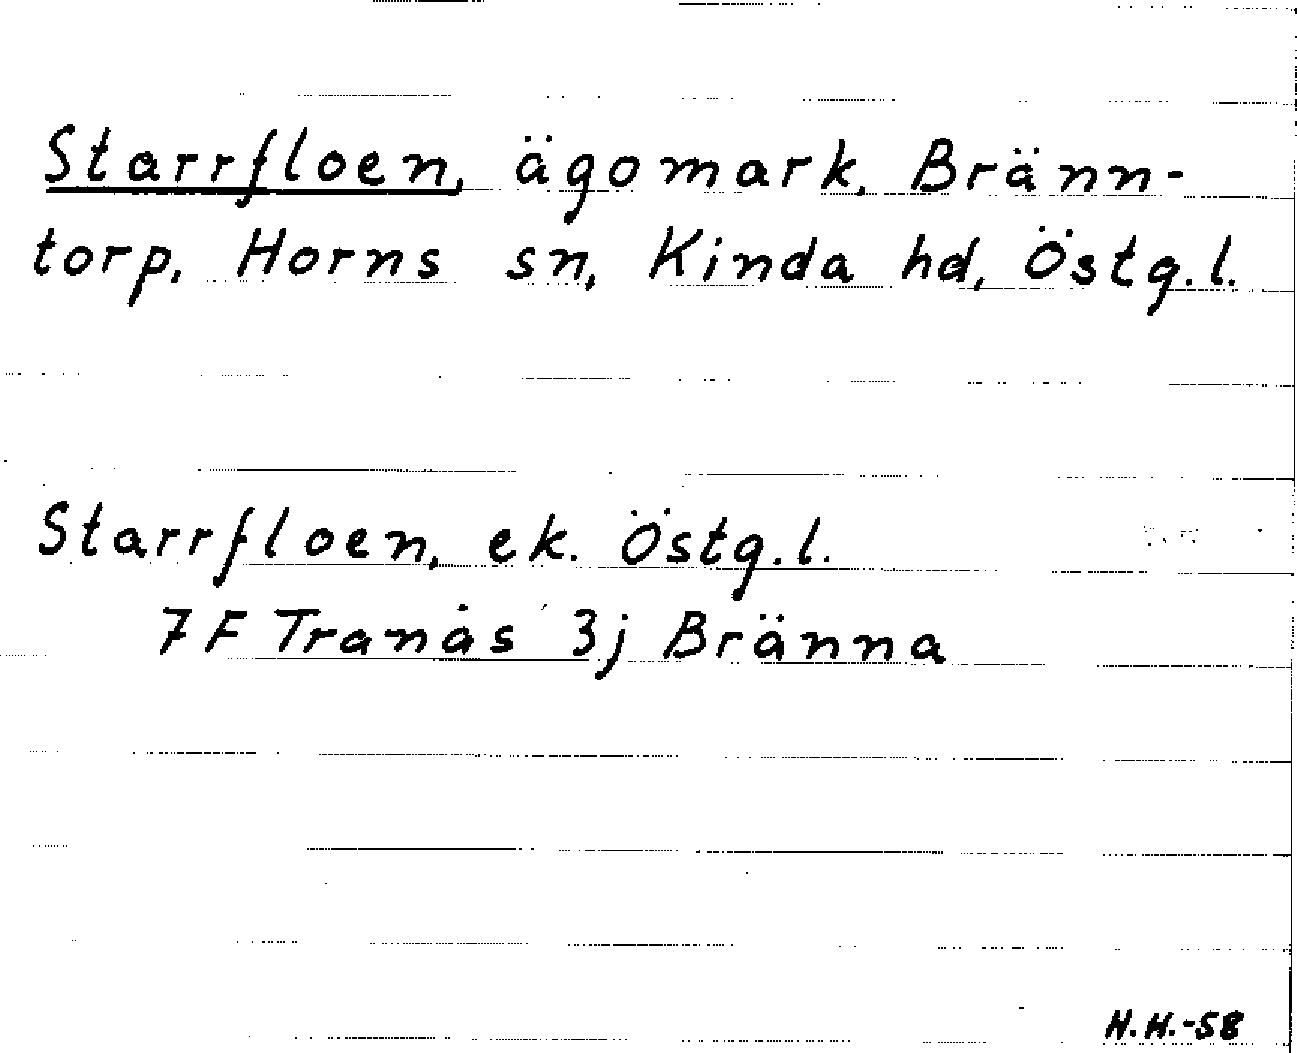 Starrfloen, ägomark, Bränn-
torp, Horns sn, Kinda hd, Östg.l.
Starrfloen, ek. Östg.l.
7F Tranås 3j Bränna
H.H.-58